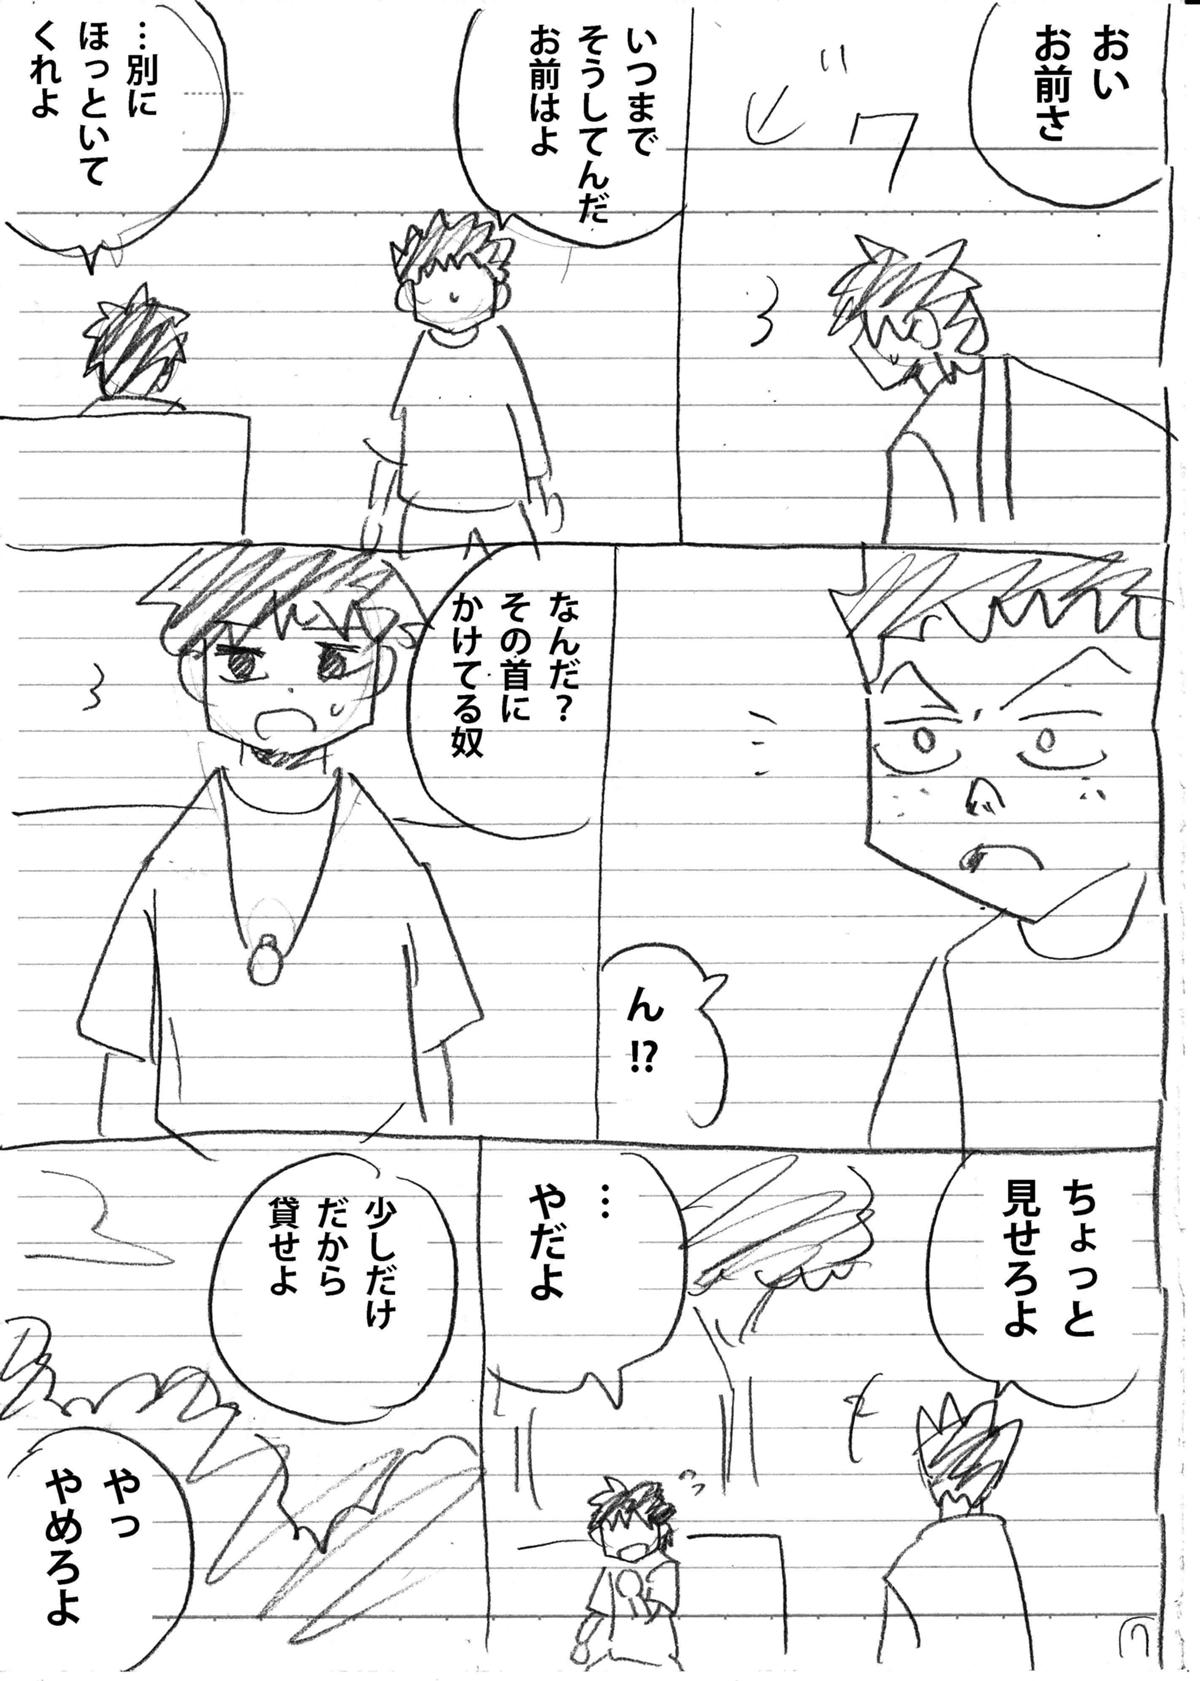 おい
お前さ
いつまで
そうしてんだ
お前はよ
…別に
ほっといて
くれよ
ん!?
なんだ?
その首に
かけてる奴
ちょっと
見せろよ
…
やだよ
少しだけ
だから
貸せよ
やっ
やめろよ